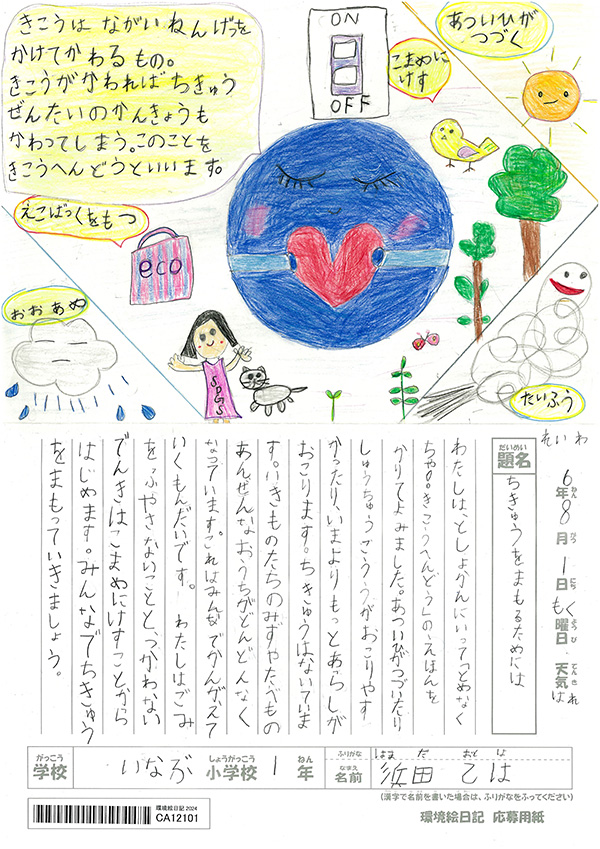 きこうは ながい ねんげつを
かけてかわるもの。
きこうがかわればちきゅう
ぜんたいのかんきょうも
かわってしまう。このことを
きこうへんどうといいます。
ON
OFF
こまめに
けす
あついひが
つづく
えこばっくをもつ
eco
おおあめ
SDGS
たいふう
れいわ
6年8月1日もく曜日 天気はれ
ねん がつ にち よう び てん き
だいめい
題名
ちきゅうをまもるためには
わたしは、としょかんにいって「とめなく
ちゃ。きこうへんどう」のえほんを
かりてよみました。あついひがつづいたり
しゅうちゅうごううがおこりやす
かったり、いまよりもっとあらしが
おこります。ちきゅうはないていま
す。いきものたちのみずやたべもの
あんぜんなおうちがどんどんなく
なっています。これはみんなでかんがえて
いくもんだいです。 わたしはごみ
をふやさないことと、つかわない
でんきはこまめにけすことから
はじめます。みんなでちきゅう
をまもっていきましょう。
がっこう しょうがっこう ねん
学校 いなぶ 小学校 1 年
ふりがな はま だ おと は
なまえ
名前 浜田 乙は
(漢字で名前を書いた場合は、ふりがなをふってください)
環境絵日記 2024
CA12101
環境絵日記 応募用紙